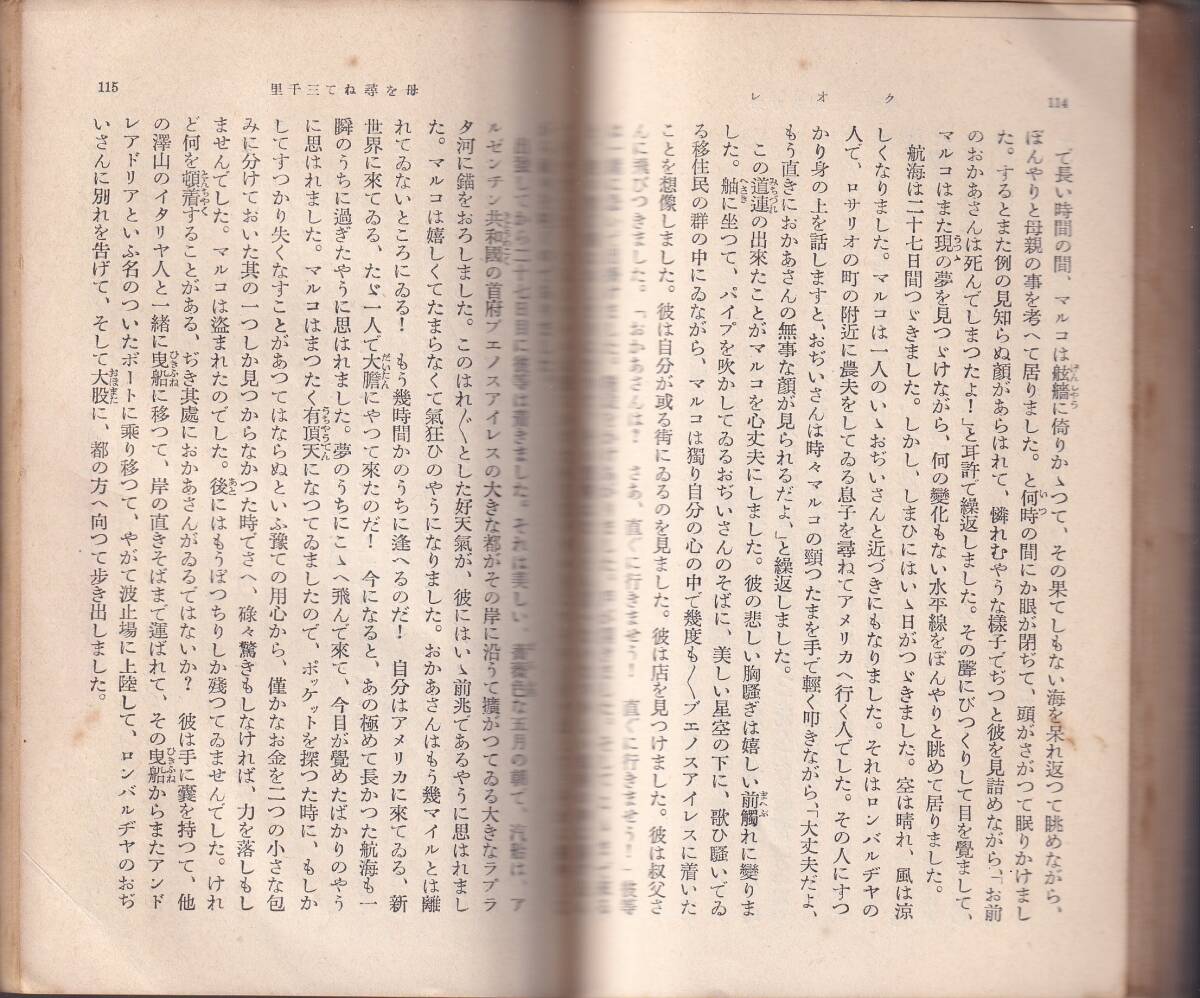 114
クオレ
で長い時間の間、マルコは舷牆に倚りかゝつて、その果てしもない海を呆れ返つて眺めながら、
ぼんやりと母親の事を考へて居りました。と何時の間にか眼が閉ぢて、頭がさがつて眠りかけまし
た。するとまた例の見知らぬ顏があらはれて、憐れむやうな樣子でぢつと彼を見詰めながら、「お前
のおかあさんは死んでしまつたよ！」と耳許で繰返しました。その聲にびつくりして目を覺まして、
マルコはまた現の夢を見つゞけながら、何の變化もない水平線をぼんやりと眺めて居りました。
航海は二十七日間つゞきました。しかし、しまひにはいゝ日がつゞきました。空は晴れ、風は涼
しくなりました。マルコは一人のいゝおぢいさんと近づきにもなりました。それはロンバルヂヤの
人で、ロサリオの町の附近に農夫をしてゐる息子を尋ねてアメリカへ行く人でした。その人にすつ
かり身の上を話しますと、おぢいさんは時々マルコの頸つたまを手で輕く叩きながら、「大丈夫だよ、
もう直きにおかあさんの無事な顏が見られるだよ、」と繰返しました。
この道連の出來たことがマルコを心丈夫にしました。彼の悲しい胸騷ぎは嬉しい前觸れに變りま
した。舳に坐つて、パイプを吹かしてゐるおぢいさんのそばに、美しい星空の下に、歌ひ騷いでゐ
る移住民の群の中にゐながら、マルコは獨り自分の心の中で幾度も〳〵ブエノスアイレスに着いた
ことを想像しました。彼は自分が或る街にゐるのを見ました。彼は店を見つけました。彼は叔父さ
んに飛びつきました。「おかあさんは？ さあ、直ぐに行きませう！ 直ぐに行きませう！」彼等
115
母を尋ねて三千里
出發してから二十七日目に彼等は着きました。それは美しい、薔薇色な五月の朝で、汽船は、ア
ルゼンチン共和國の首府ブエノスアイレスの大きな都がその岸に沿うて擴がつてゐる大きなラプラ
タ河に錨をおろしました。このはれ〴〵とした好天氣が、彼にはいゝ前兆であるやうに思はれまし
た。マルコは嬉しくてたまらなくて氣狂ひのやうになりました。おかあさんはもう幾マイルとは離
れてゐないところにゐる！ もう幾時間かのうちに逢へるのだ！ 自分はアメリカに來てゐる、新
世界に來てゐる、たゞ一人で大膽にやつて來たのだ！ 今になると、あの極めて長かつた航海も一
瞬のうちに過ぎたやうに思はれました。夢のうちにこゝへ飛んで來て、今目が覺めたばかりのやう
に思はれました。マルコはまつたく有頂天になつてゐましたので、ポッケットを探つた時に、もしか
してすつかり失くなすことがあつてはならぬといふ豫ての用心から、僅かなお金を二つの小さな包
みに分けておいた其の一つしか見つからなかつた時でさへ、碌々驚きもしなければ、力を落しもし
ませんでした。マルコは盜まれたのでした。後にはもうぽつちりしか殘つてゐませんでした。けれ
ど何を頓着することがある、ぢき其處におかあさんがゐるではないか？ 彼は手に嚢を持つて、他
の澤山のイタリヤ人と一緖に曳船に移つて、岸の直きそばまで運ばれて、その曳船からまたアンド
レアドリアといふ名のついたボートに乘り移つて、やがて波止場に上陸して、ロンバルヂヤのおぢ
いさんに別れを告げて、そして大股に、都の方へ向つて步き出しました。